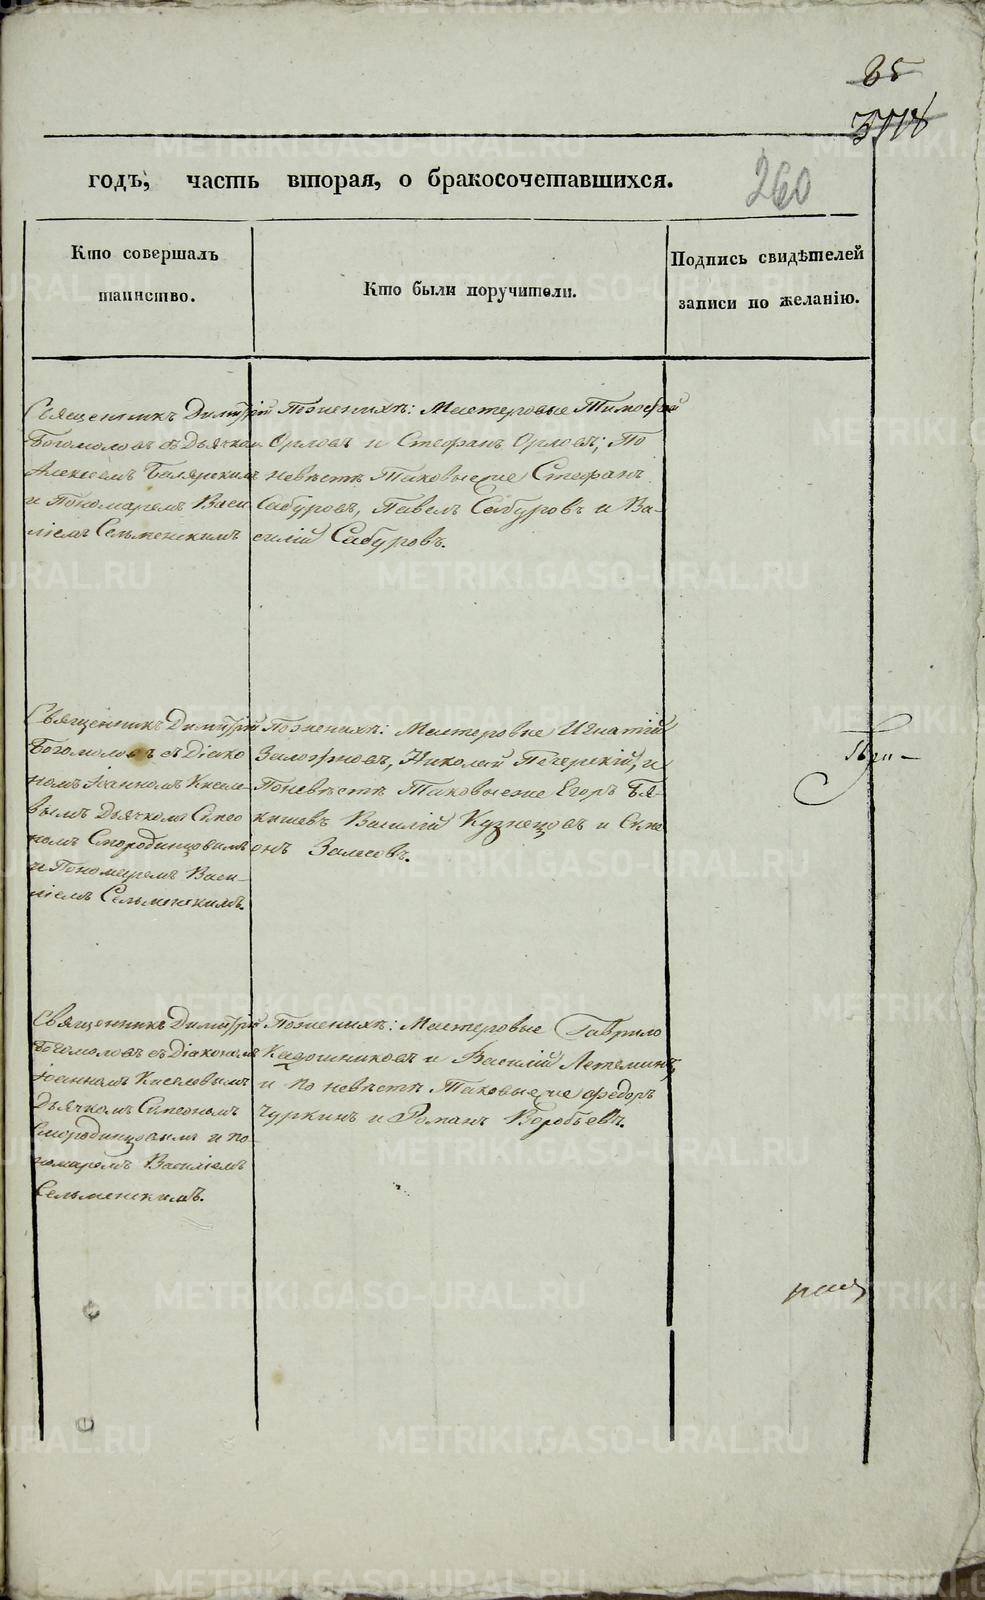 35
260
годъ, часть вторая, о бракосочетавшихся.
Кто совершалъ
таинство.
Кто были поручители.
Подпись свидѣтелей
записи по желанію.
Священникъ Димитрій
Богомоловъ съ Дьячкомъ
Алексѣемъ Боярскимъ
и Пономаремъ Васи
ліемъ Сельменскимъ
По женихѣ: Мастеровые Тимофей
Орловъ и Стефанъ Орловъ; По
невѣстѣ Таковыеже Стефанъ
Сабуровъ, Павелъ Сабуровъ и Ва-
силій Сабуровъ.
Священникъ Димитрій
Богомоловъ съ Діако
номъ Іоанномъ Киселе
вымъ Дьячкомъ Симео
номъ Смородинцовымъ
и Пономаремъ Васи-
ліемъ Сельменскимъ.
По женихѣ: Мастеровые Игнатій
Николай Печерскій, и
Поневѣстѣ Таковыеже Егоръ Бя-
кишевъ Василій Кузнецовъ и Симе
онъ Залесовъ.
Священникъ Димитрій
Богомоловъ съ Діакономъ
Іоанномъ Киселевымъ
Дьячкомъ Симеономъ
Смородинцовымъ и по-
номаремъ Василіемъ
Сельменскимъ.
По женихѣ: Мастеровые Гаврило
Кадошниковъ и Василій Летеминъ,
и по невѣстѣ Таковыеже Федоръ
Чуркинъ и Романъ Воробьевъ.
METRIKI.GASO-URAL.RU